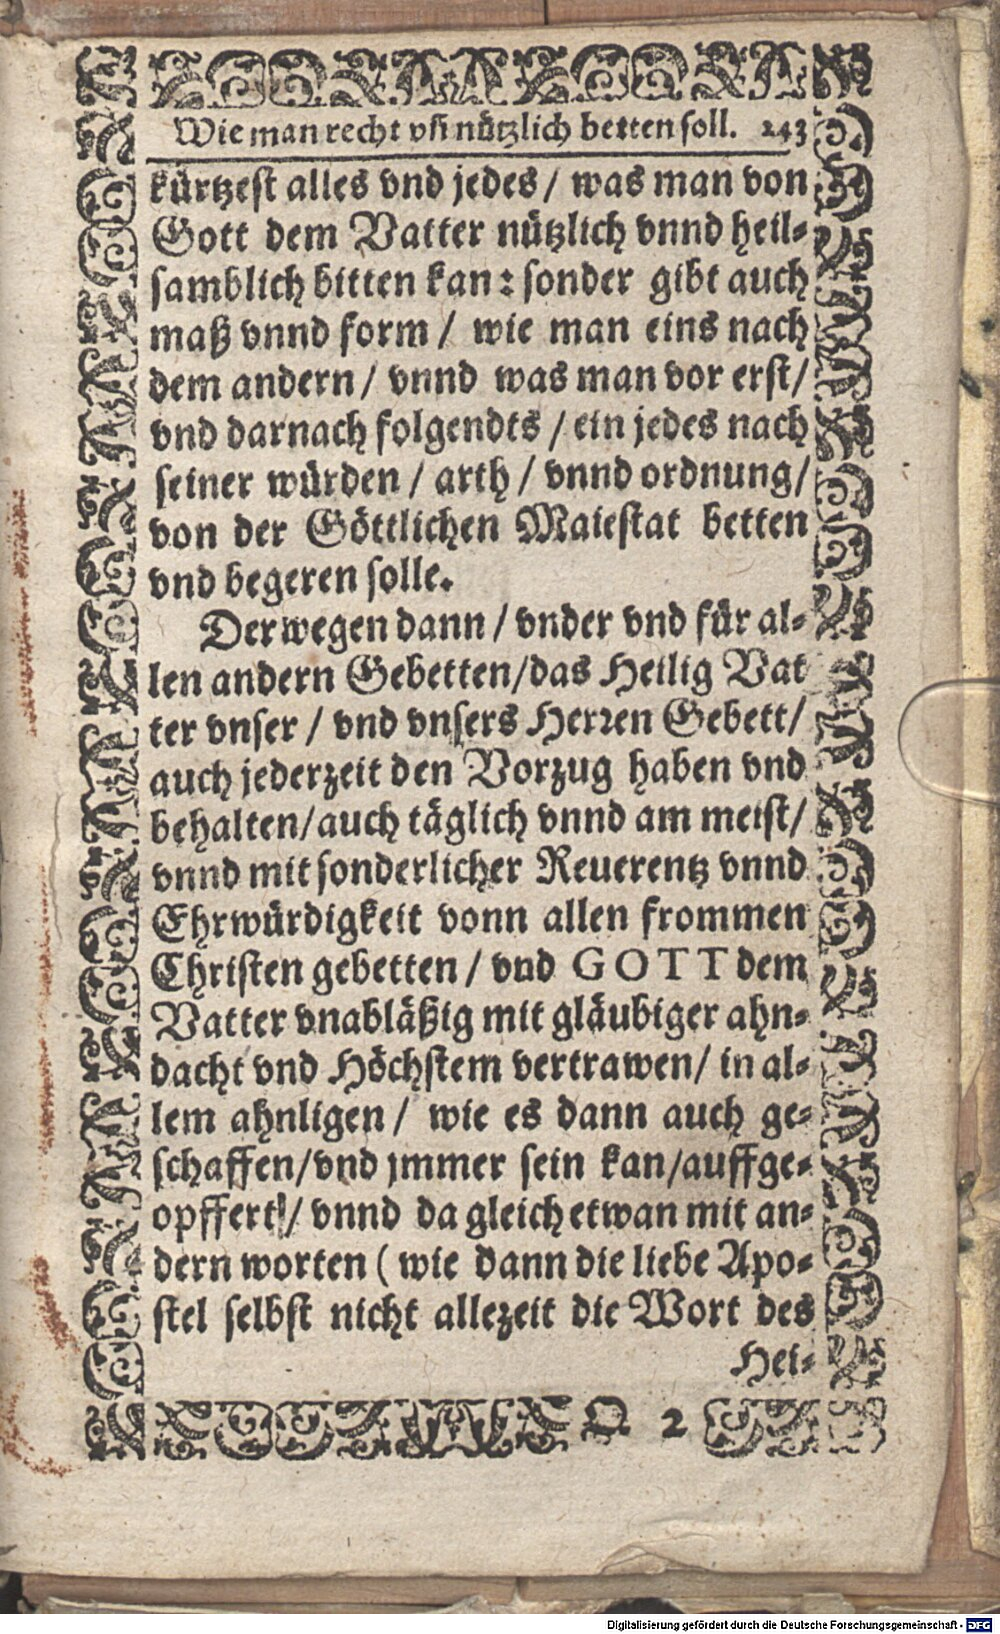 Wie man recht vñ nützlich betten soll. 243
kürtzest alles vnd jedes / was man von
Gott dem Vatter nützlich vnnd heil-
samblich bitten kan: sonder gibt auch
maß vnnd form / wie man eins nach
dem andern / vnnd was man vor erst/
vnd darnach folgendts / ein jedes nach
seiner würden / arth / vnnd ordnung/
von der Göttlichen Maiestat betten
vnd begeren solle.
Derwegen dann / vnder vnd für al-
len andern Gebetten/das Heilig Vat
ter vnser / vnd vnsers Herren Gebett/
auch jederzeit den Vorzug haben vnd
behalten/auch täglich vnnd am meist/
vnnd mit sonderlicher Reuerentz vnnd
Ehrwürdigkeit vonn allen frommen
Christen gebetten / vnd GOTT dem
Vatter vnabläßig mit gläubiger ahn-
dacht vnd Höchstem vertrawen/ in al-
lem ahnligen / wie es dann auch ge-
schaffen/vnd jmmer sein kan/auffge-
opffert/ vnnd da gleich etwan mit an-
dern worten ( wie dann die liebe Apo-
stel selbst nicht allezeit die Wort des
Hei-
Q 2
Digitalisierung gefördert durch die Deutsche Forschungsgemeinschaft - DFG